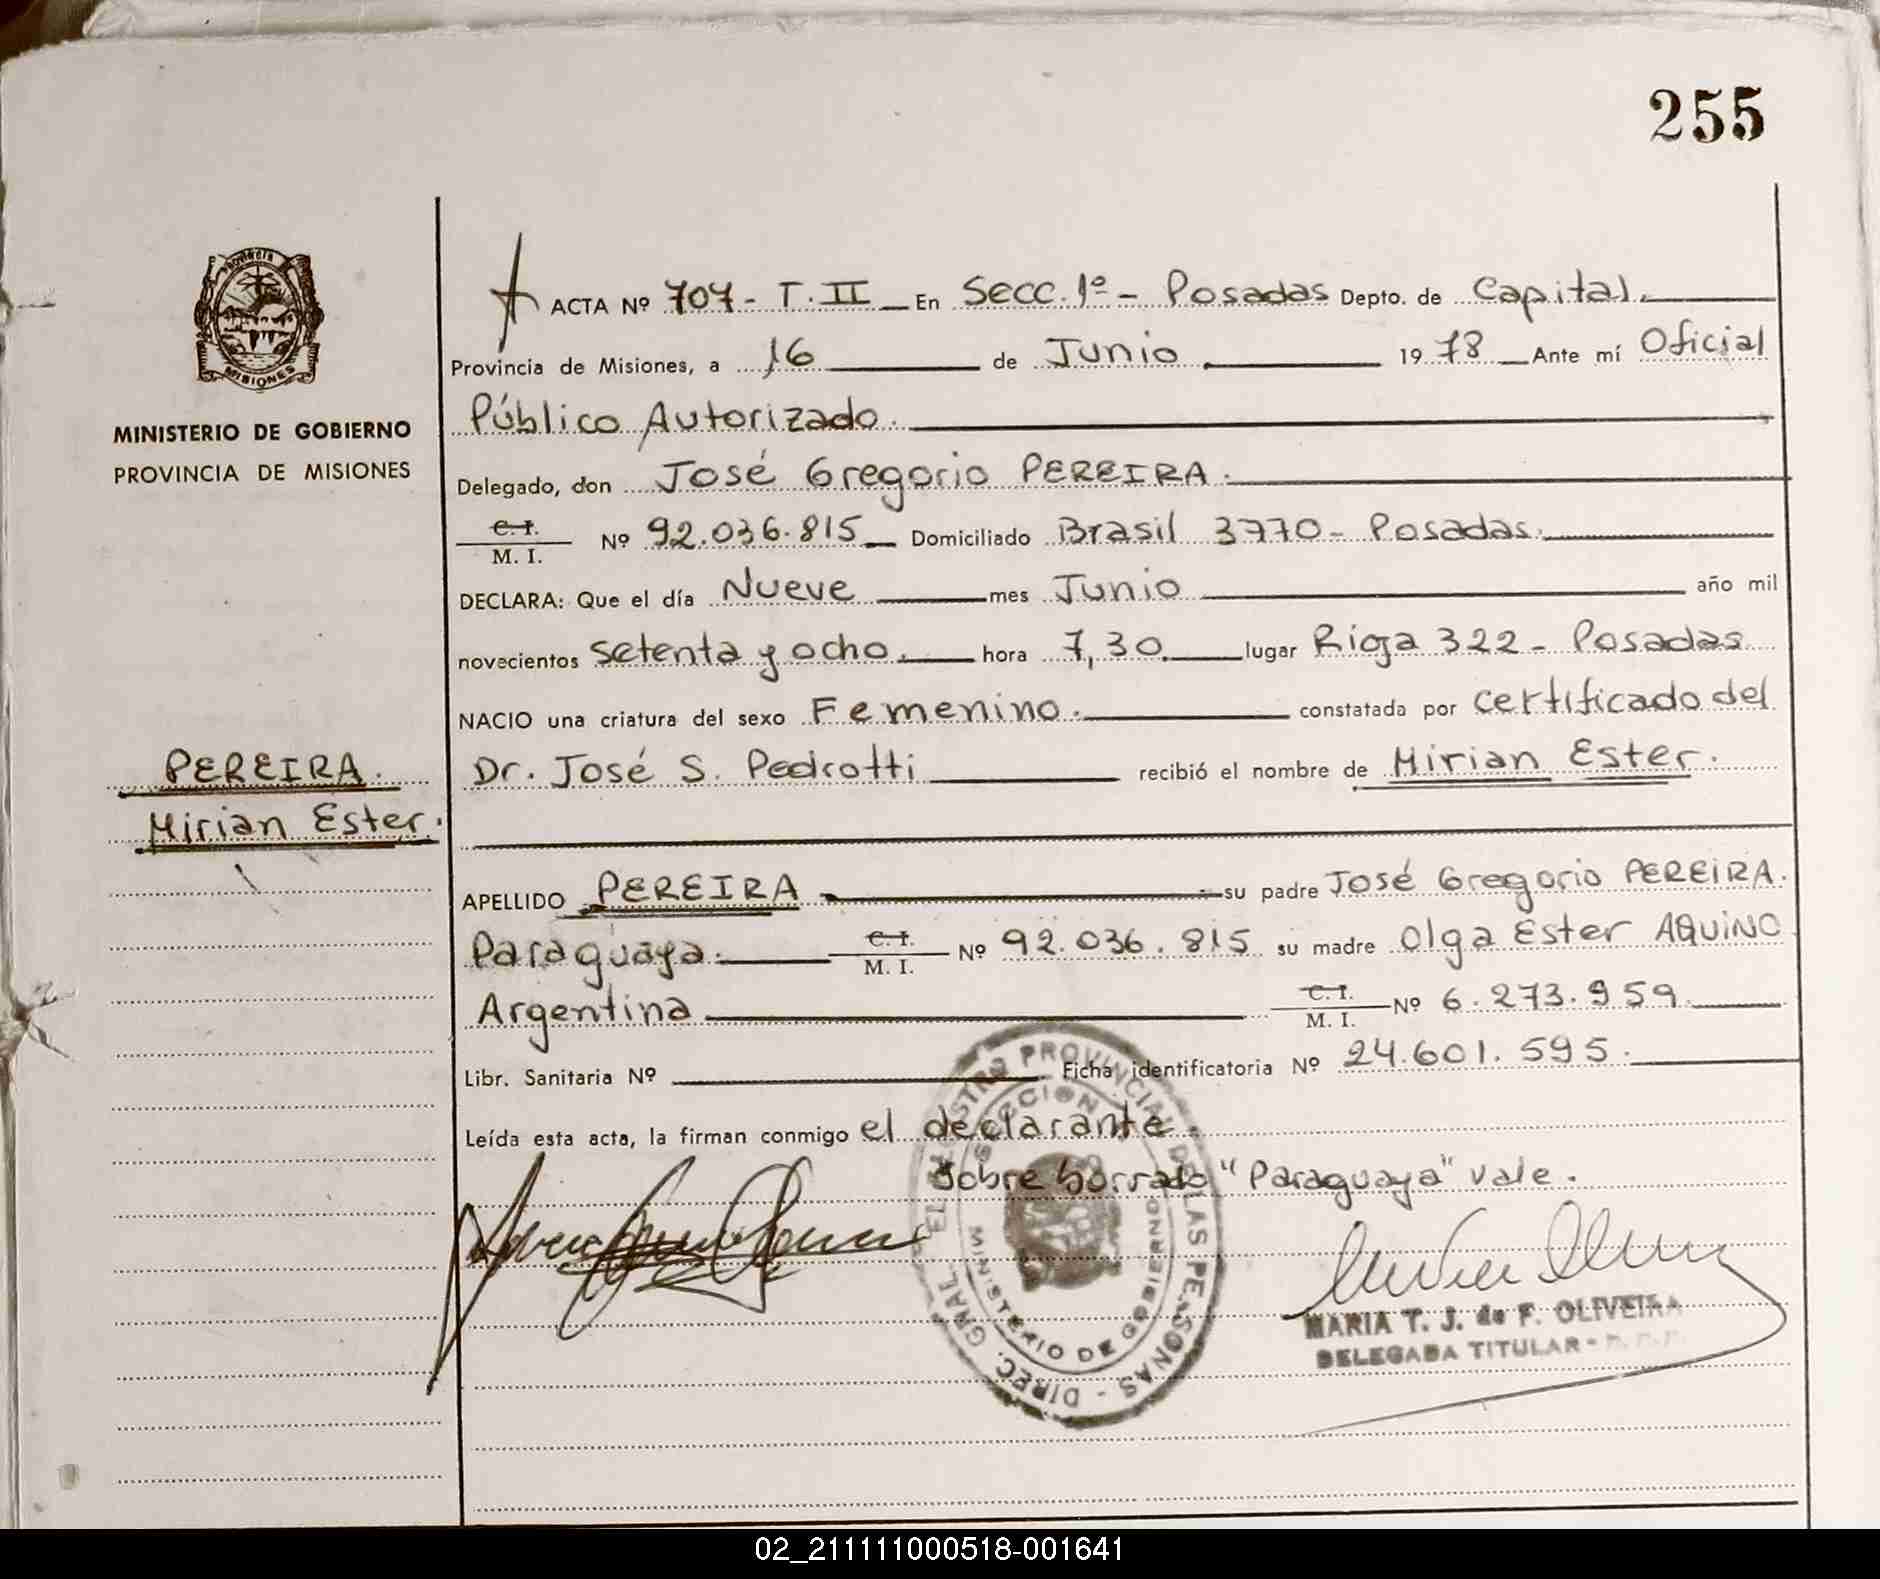 255
Provincia
MISIONES
MINISTERIO DE GOBIERNO
PROVINCIA DE MISIONES
PEREIRA.
Mirian Ester.
ACTA Nº 707- T. II En Secc. 1º - Posadas Depto. de Capital.
Provincia de Misiones, a 16 de Junio 1978 Ante mí Oficial
Público Autorizado.
Delegado, don José Gregorio PEREIRA.
C. I.
M. I. Nº 92.036.815 Domiciliado Brasil 3770- Posadas.
DECLARA: Que el día Nueve mes Junio año mil
novecientos setenta y ocho. hora 7,30. lugar Rioja 322 - Posadas
NACIO una criatura del sexo Femenino. constatada por certificado del
Dr. José S. Pedrotti recibió el nombre de Mirian Ester.
APELLIDO PEREIRA su padre José Gregorio PEREIRA.
Paraguaya. C. I. M. I. Nº 92.036.815 su madre Olga Ester AQUINO
Argentina C. I. M. I. Nº 6.273.959.
Libr. Sanitaria Nº Ficha identificatoria Nº 24.601.595.
Leída esta acta, la firman conmigo el declarante.
Sobre borrado "Paraguaya" vale.
DIREC. GRAL. DEL REGISTRO PROVINCIAL DE LAS PERSONAS
SECCION
MINISTERIO DE GOBIERNO
MARIA T. J. de F. OLIVEIRA
DELEGADA TITULAR -
02_211111000518-001641